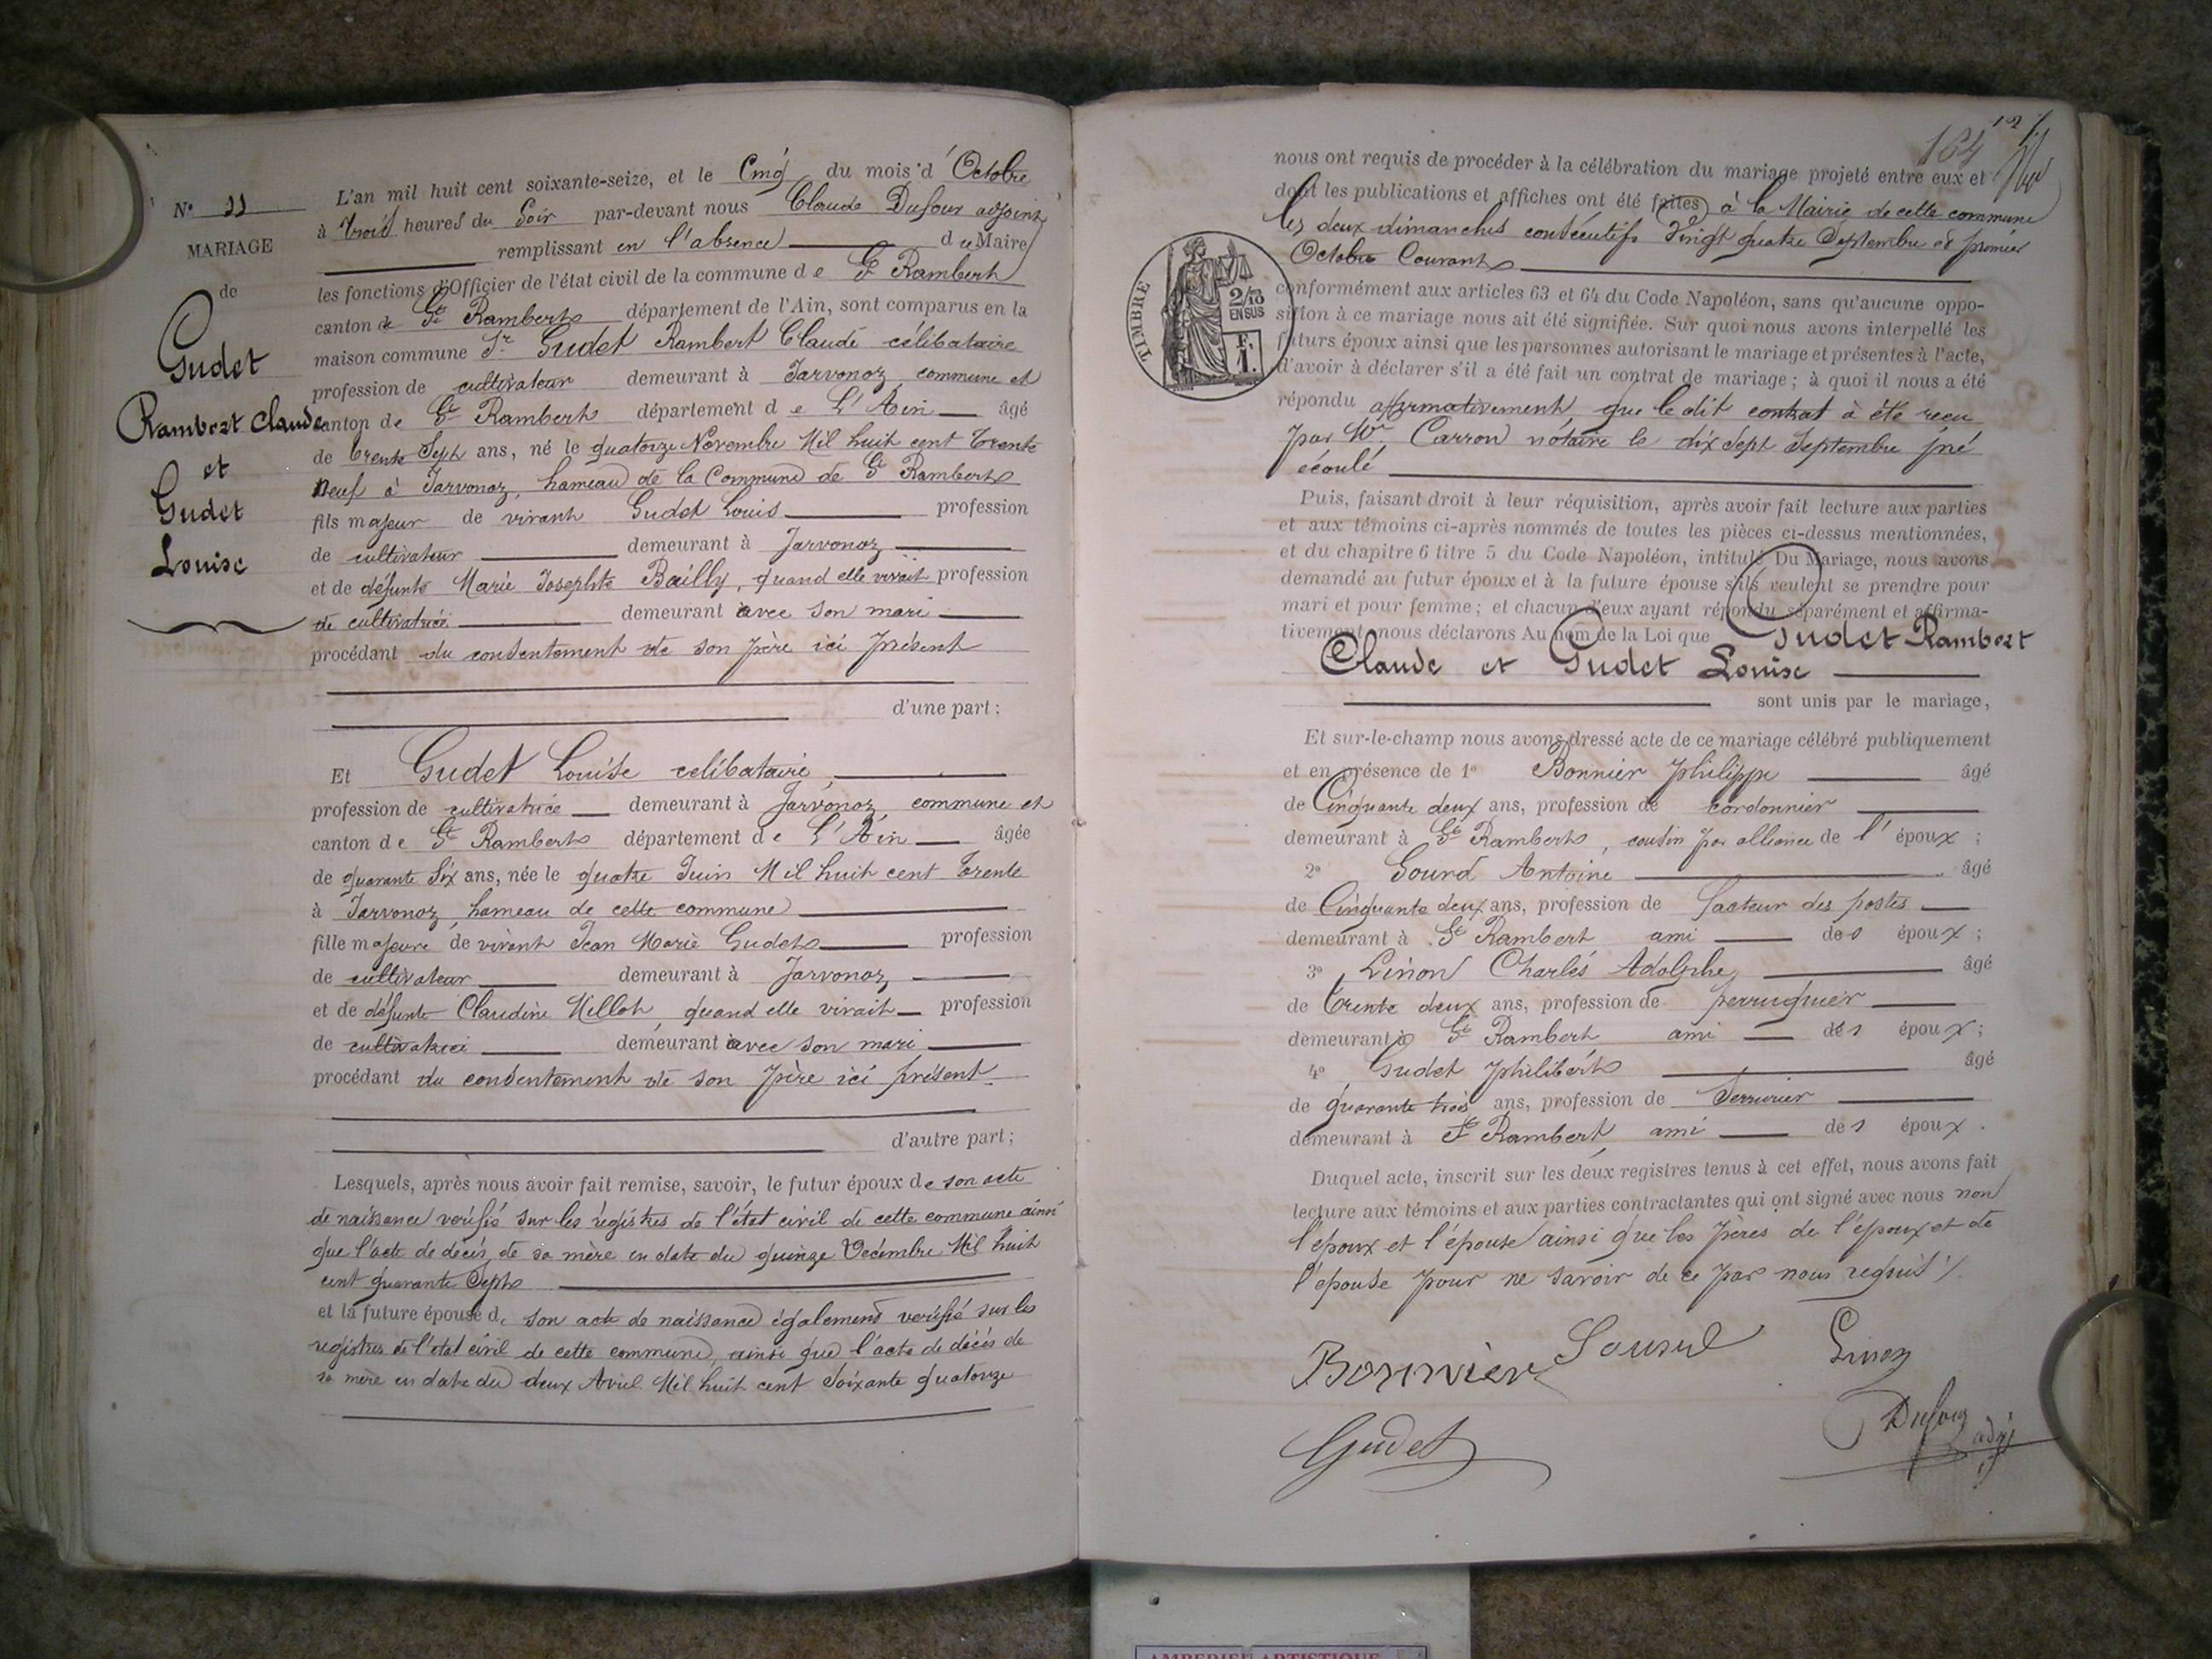 N° 11
MARIAGE
de
Gudet
Rambert Claude
et
Gudet
Louise
L'an mil huit cent soixante-seize, et le Cinq du mois d'Octobre
à trois heures du Soir par-devant nous Claude Dufour adjoint
remplissant en l'absence du Maire
les fonctions d'Officier de l'état civil de la commune de St Rambert
canton de St Rambert département de l'Ain, sont comparus en la
maison commune Sr Gudet Rambert Claude célibataire
profession de cultivateur demeurant à Jarvonoz commune et
canton de St Rambert département de L'Ain âgé
de trente Sept ans, né le quatorze Novembre Mil huit cent Trente
Neuf à Jarvonoz, hameau de la Commune de St Rambert
fils majeur de vivant Gudet Louis profession
de cultivateur demeurant à Jarvonoz
et de défunte Marie Josephte Bailly, quand elle vivait profession
de cultivatrice demeurant avec son mari
procédant du consentement de son père ici présent
d'une part;
Et Gudet Louise celibataire
profession de cultivatrice demeurant à Jarvonoz commune et
canton de St Rambert département de L'Ain âgée
de quarante Six ans, née le quatre Juin Mil huit cent Trente
à Jarvonoz hameau de cette commune
fille majeure de vivant Jean Marie Gudet profession
de cultivateur demeurant à Jarvonoz
et de défunte Claudine Millot quand elle vivait profession
de cultivatrice demeurant avec son mari
procédant du consentement de son père ici présent
d'autre part;
Lesquels, après nous avoir fait remise, savoir, le futur époux de son acte
de naissance verifié sur les registres de l'état civil de cette commune ainsi
que l'acte de décès de sa mère en date du quinze Decembre Mil huit
cent quarante Sept
et la future épouse de son acte de naissance également verifié sur les
registres de l'état civil de cette commune, ainsi que l'acte de décès de
sa mère en date du deux Avril Mil huit cent Soixante quatorze
164
nous ont requis de procéder à la célébration du mariage projeté entre eux et
dont les publications et affiches ont été faites à la Mairie de cette commune
les deux dimanches consécutifs Vingt quatre Septembre et premier
Octobre Courant
TIMBRE
2/10
EN SUS
F.
1.
conformément aux articles 63 et 64 du Code Napoléon, sans qu'aucune oppo-
sition à ce mariage nous ait été signifiée. Sur quoi nous avons interpellé les
futurs époux ainsi que les personnes autorisant le mariage et présentes à l'acte,
d'avoir à déclarer s'il a été fait un contrat de mariage; à quoi il nous a été
répondu affirmativement que le dit contrat à été recu
par Me Carron notaire le dix Sept Septembre
écoulé
Puis, faisant droit à leur réquisition, après avoir fait lecture aux parties
et aux témoins ci-après nommés de toutes les pièces ci-dessus mentionnées,
et du chapitre 6 titre 5 du Code Napoléon, intitulé Du Mariage, nous avons
demandé au futur époux et à la future épouse s'ils veulent se prendre pour
mari et pour femme; et chacun d'eux ayant répondu séparément et affirma-
tivement nous déclarons Au nom de la Loi que Gudet Rambert
Claude et Gudet Louise
sont unis par le mariage,
Et sur-le-champ nous avons dressé acte de ce mariage célébré publiquement
et en présence de 1° Bonnier Philippe âgé
de Cinquante deux ans, profession de cordonnier
demeurant à St Rambert, cousin par alliance de l'époux;
2° Gourd Antoine âgé
de Cinquante deux ans, profession de facteur des postes
demeurant à St Rambert ami des époux;
3° Linon Charles Adolphe âgé
de trente deux ans, profession de perruquier
demeurant à St Rambert ami des époux;
4° Gudet Philibert âgé
de quarante trois ans, profession de Serrurier
demeurant à St Rambert ami des époux.
Duquel acte, inscrit sur les deux registres tenus à cet effet, nous avons fait
lecture aux témoins et aux parties contractantes qui ont signé avec nous non
l'époux et l'épouse ainsi que les pères de l'époux et de
l'épouse pour ne savoir de ce par nous requis
Bonnier
Linon
Gudet
Dufour adj
AMBERIEU ARTISTIQUE